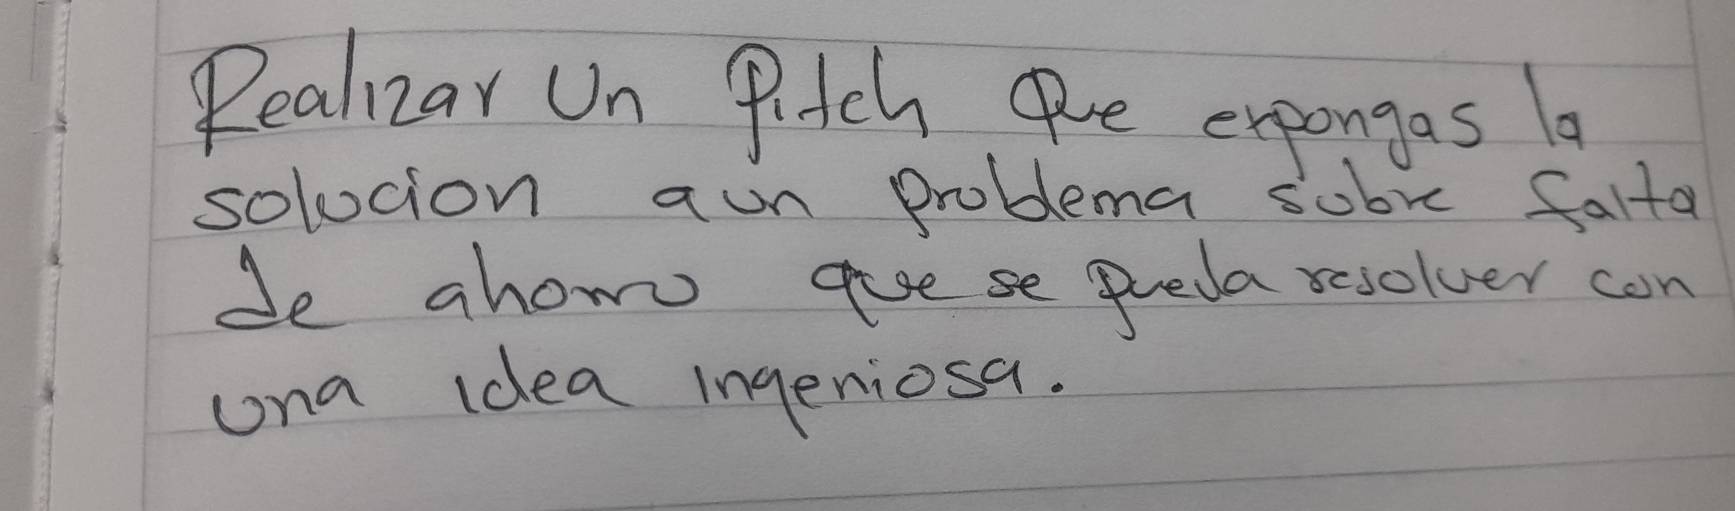 Realizar Un Pitch Que expongas la
solucion a un problema sobre falta
de ahorro que se pueda resolver con
una idea ingeniosa.